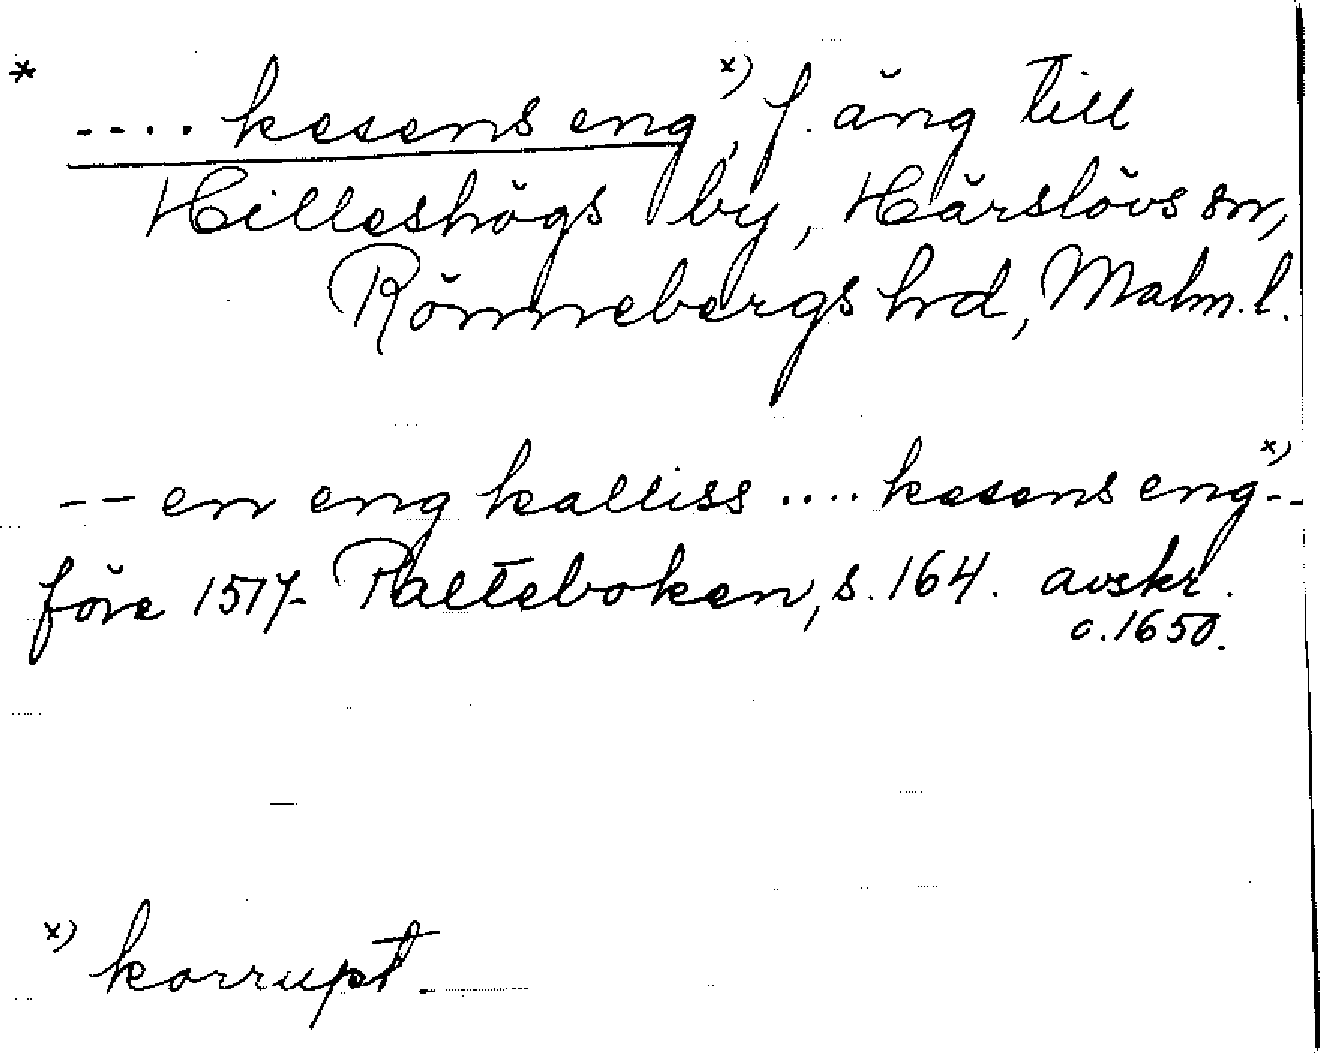 * .... kesens eng x), f. äng till
Hilleshögs by, Härslövs sn,
Rönnebergs hrd, Malm. l.
-- en eng kalliss .... kesens eng x) --
före 1517- Palteboken, s. 164. avskr.
c. 1650.
x) korrupt.